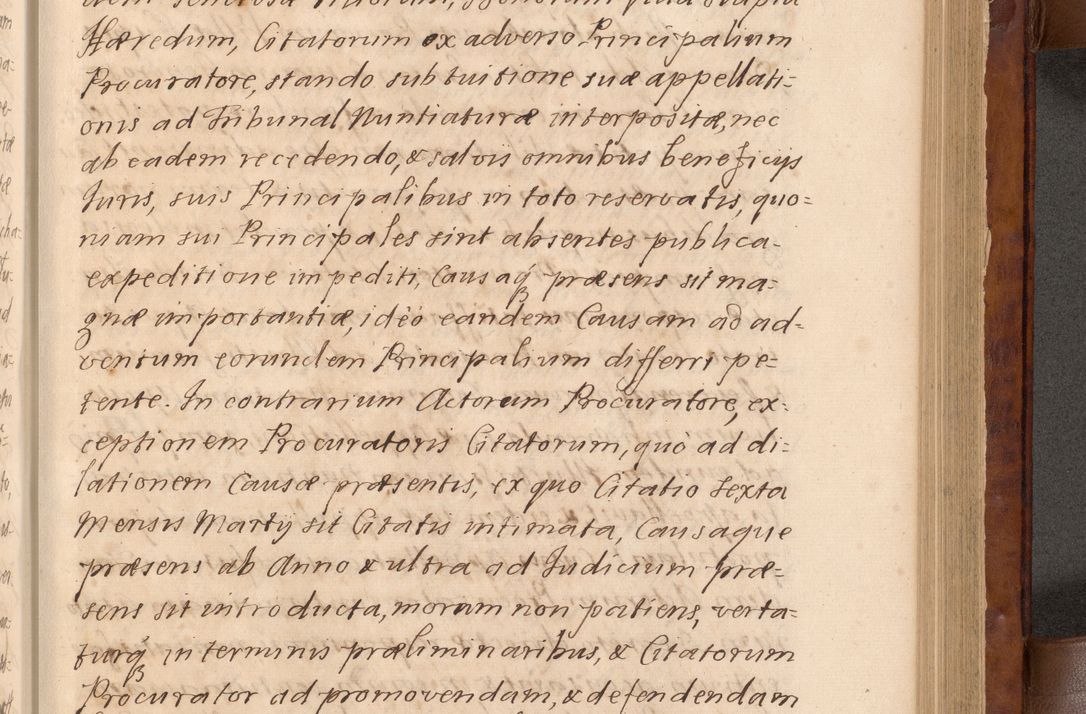 Hæredum, Citatorum ex adverso Principalium
Procuratore, stando sub tuitione suæ appellati=
onis ad Tribunal Nuntiaturæ interpositæ, nec
ab eadem recedendo, & salvis omnibus beneficijs
Iuris, suis Principalibus in toto reservatis, quo=
niam sui Principales sint absentes publica
expeditione impediti, Causaq́ꝫ præsens sit ma=
gnæ importantiæ, ideò eandem Causam ad ad=
ventum eorundem Principalium differri pe=
tente. In contrarium Actorum Procuratore, ex=
ceptionem Procuratoris Citatorum, quò ad di=
lationem Causæ præsentis, ex quo Citatio Sexta
Mensis Martij sit Citatis intimata, Causaque
præsens ab Anno & ultra ad Iudicium præ=
sens sit introducta, moram non patiens, verta=
turq́ꝫ in terminis præliminaribus, & Citatorum
Procurator ad promovendam, & defendendam